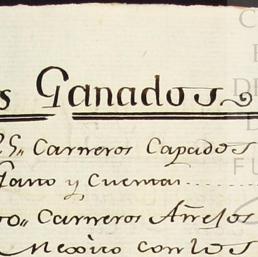 s Ganados
25,, Carneros Capados
y Cuentas
Carneros Añejos
Mexico con los